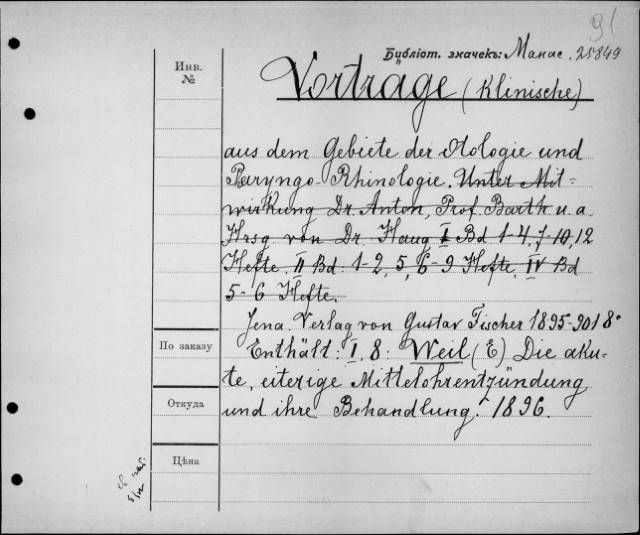 91
Библіот. значекъ: Манас. 25849
Инв.
№
Vorträge (Klinische)
aus dem Gebiete der Otologie und
Paryngo-Rhinologie. Unter Mit-
wirkung Dr. Anton, Prof. Barth u. a.
Hrsg. von Dr. Haug I Bd 1-4, 7-10, 12
Hefte. II Bd: 1-2, 5, 6-9 Hefte, IV Bd
5-6 Hefte.
Jena. Verlag von Gustav Fischer 1895-901 8°
По заказу
Enthält: I, 8: Weil (E) Die aku-
te, eiterige Mittelohrentzündung
Откуда
und ihre Behandlung. 1896.
Цѣна